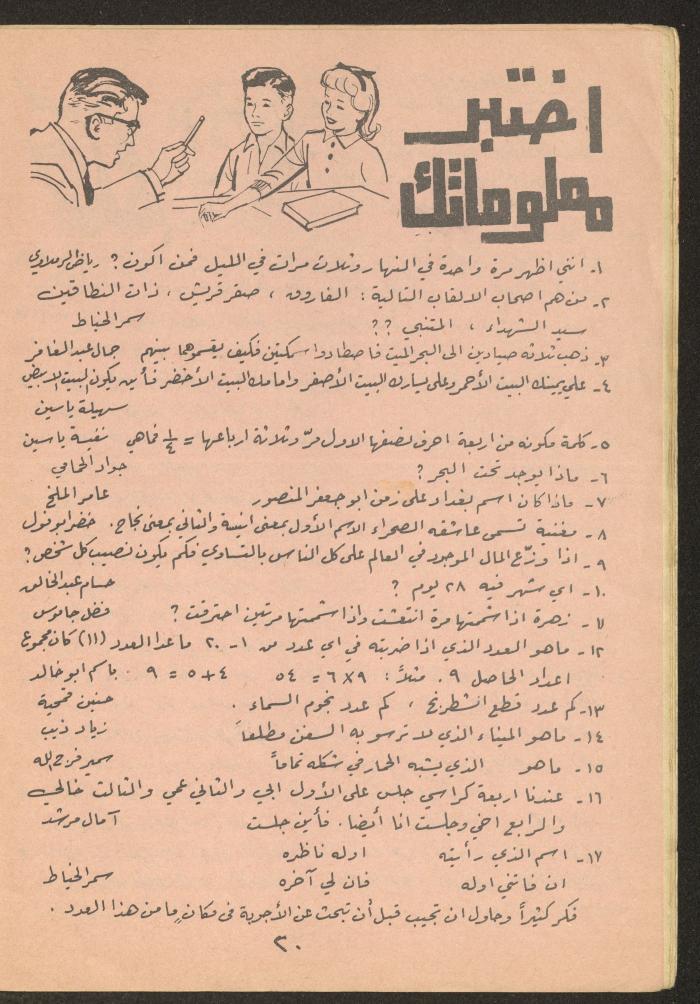 اختبر
معلوماتك
١- انني اظهر مرة واحدة في النهار وثلاث مرات في الليل فمن اكون ؟ رياض الرملاوي
٢- من هم اصحاب الالقاب التالية : الفاروق ، صقر قريش ، ذات النطاقين
سيد الشهداء ، المتنبي ؟؟ سمر الخياط
٣- ذهب ثلاثة صيادين الى البحر الميت فاصطادوا سمكتين فكيف يقسموهما بينهم جمال عبد الغافر
٤- على يمينك البيت الأحمر وعلى يسارك البيت الأصفر وامامك البيت الأخضر فأين يكون البيت الابيض
سهيلة ياسين
٥- كلمة مكونه من اربعة احرف نصفها الاول مرّ وثلاثة ارباعها = ¼ فماهي نفيسة ياسين
٦- ماذا يوجد تحت البحر ؟ جواد الحامي
٧- ماذا كان اسم بغداد على زمن ابو جعفر المنصور عامر الملح
٨- مغنية تسمى عاشقه الصحراء الاسم الأول بمعنى انيسة والثاني بمعنى نجاح . خضر ابو نول
٩- اذا وزّع المال الموجود في العالم على كل الناس بالتساوي فكم يكون نصيب كل شخص ؟
١٠- اي شهر فيه ٢٨ يوم ؟ حسام عبد الخالق
١١- زهرة اذا شممتها مرة انتعشت واذا شممتها مرتين احترقت ؟ فضل جاموس
١٢- ماهو العدد الذي اذا ضربته في اي عدد من ١- ٢٠ ما عدا العدد (١١) كان مجموع
اعداد الحاصل ٩ . مثلاً : ٩×٦ = ٥٤ ٤+٥ = ٩ . باسم ابو خالد
١٣- كم عدد قطع الشطرنج ، كم عدد نجوم السماء . حنين قمحية
١٤- ماهو الميناء الذي لا ترسو به السفن مطلقاً زياد ذيب
١٥- ماهو الذي يشبه الحمار في شكله تماماً سمير فرج الله
١٦- عندنا اربعة كراسي جلس على الأول ابي والثاني عمي والثالث خالي
والرابع اخي وجلست انا أيضا . فأين جلست آمال مرشد
١٧- اسم الذي رأيته اوله ناظره
ان فاتني اوله فان لي آخره سمر الخياط
فكر كثيراً وحاول ان تجيب قبل أن تبحث عن الأجوبة في مكانٍ ما من هذا العدد .
٣٠